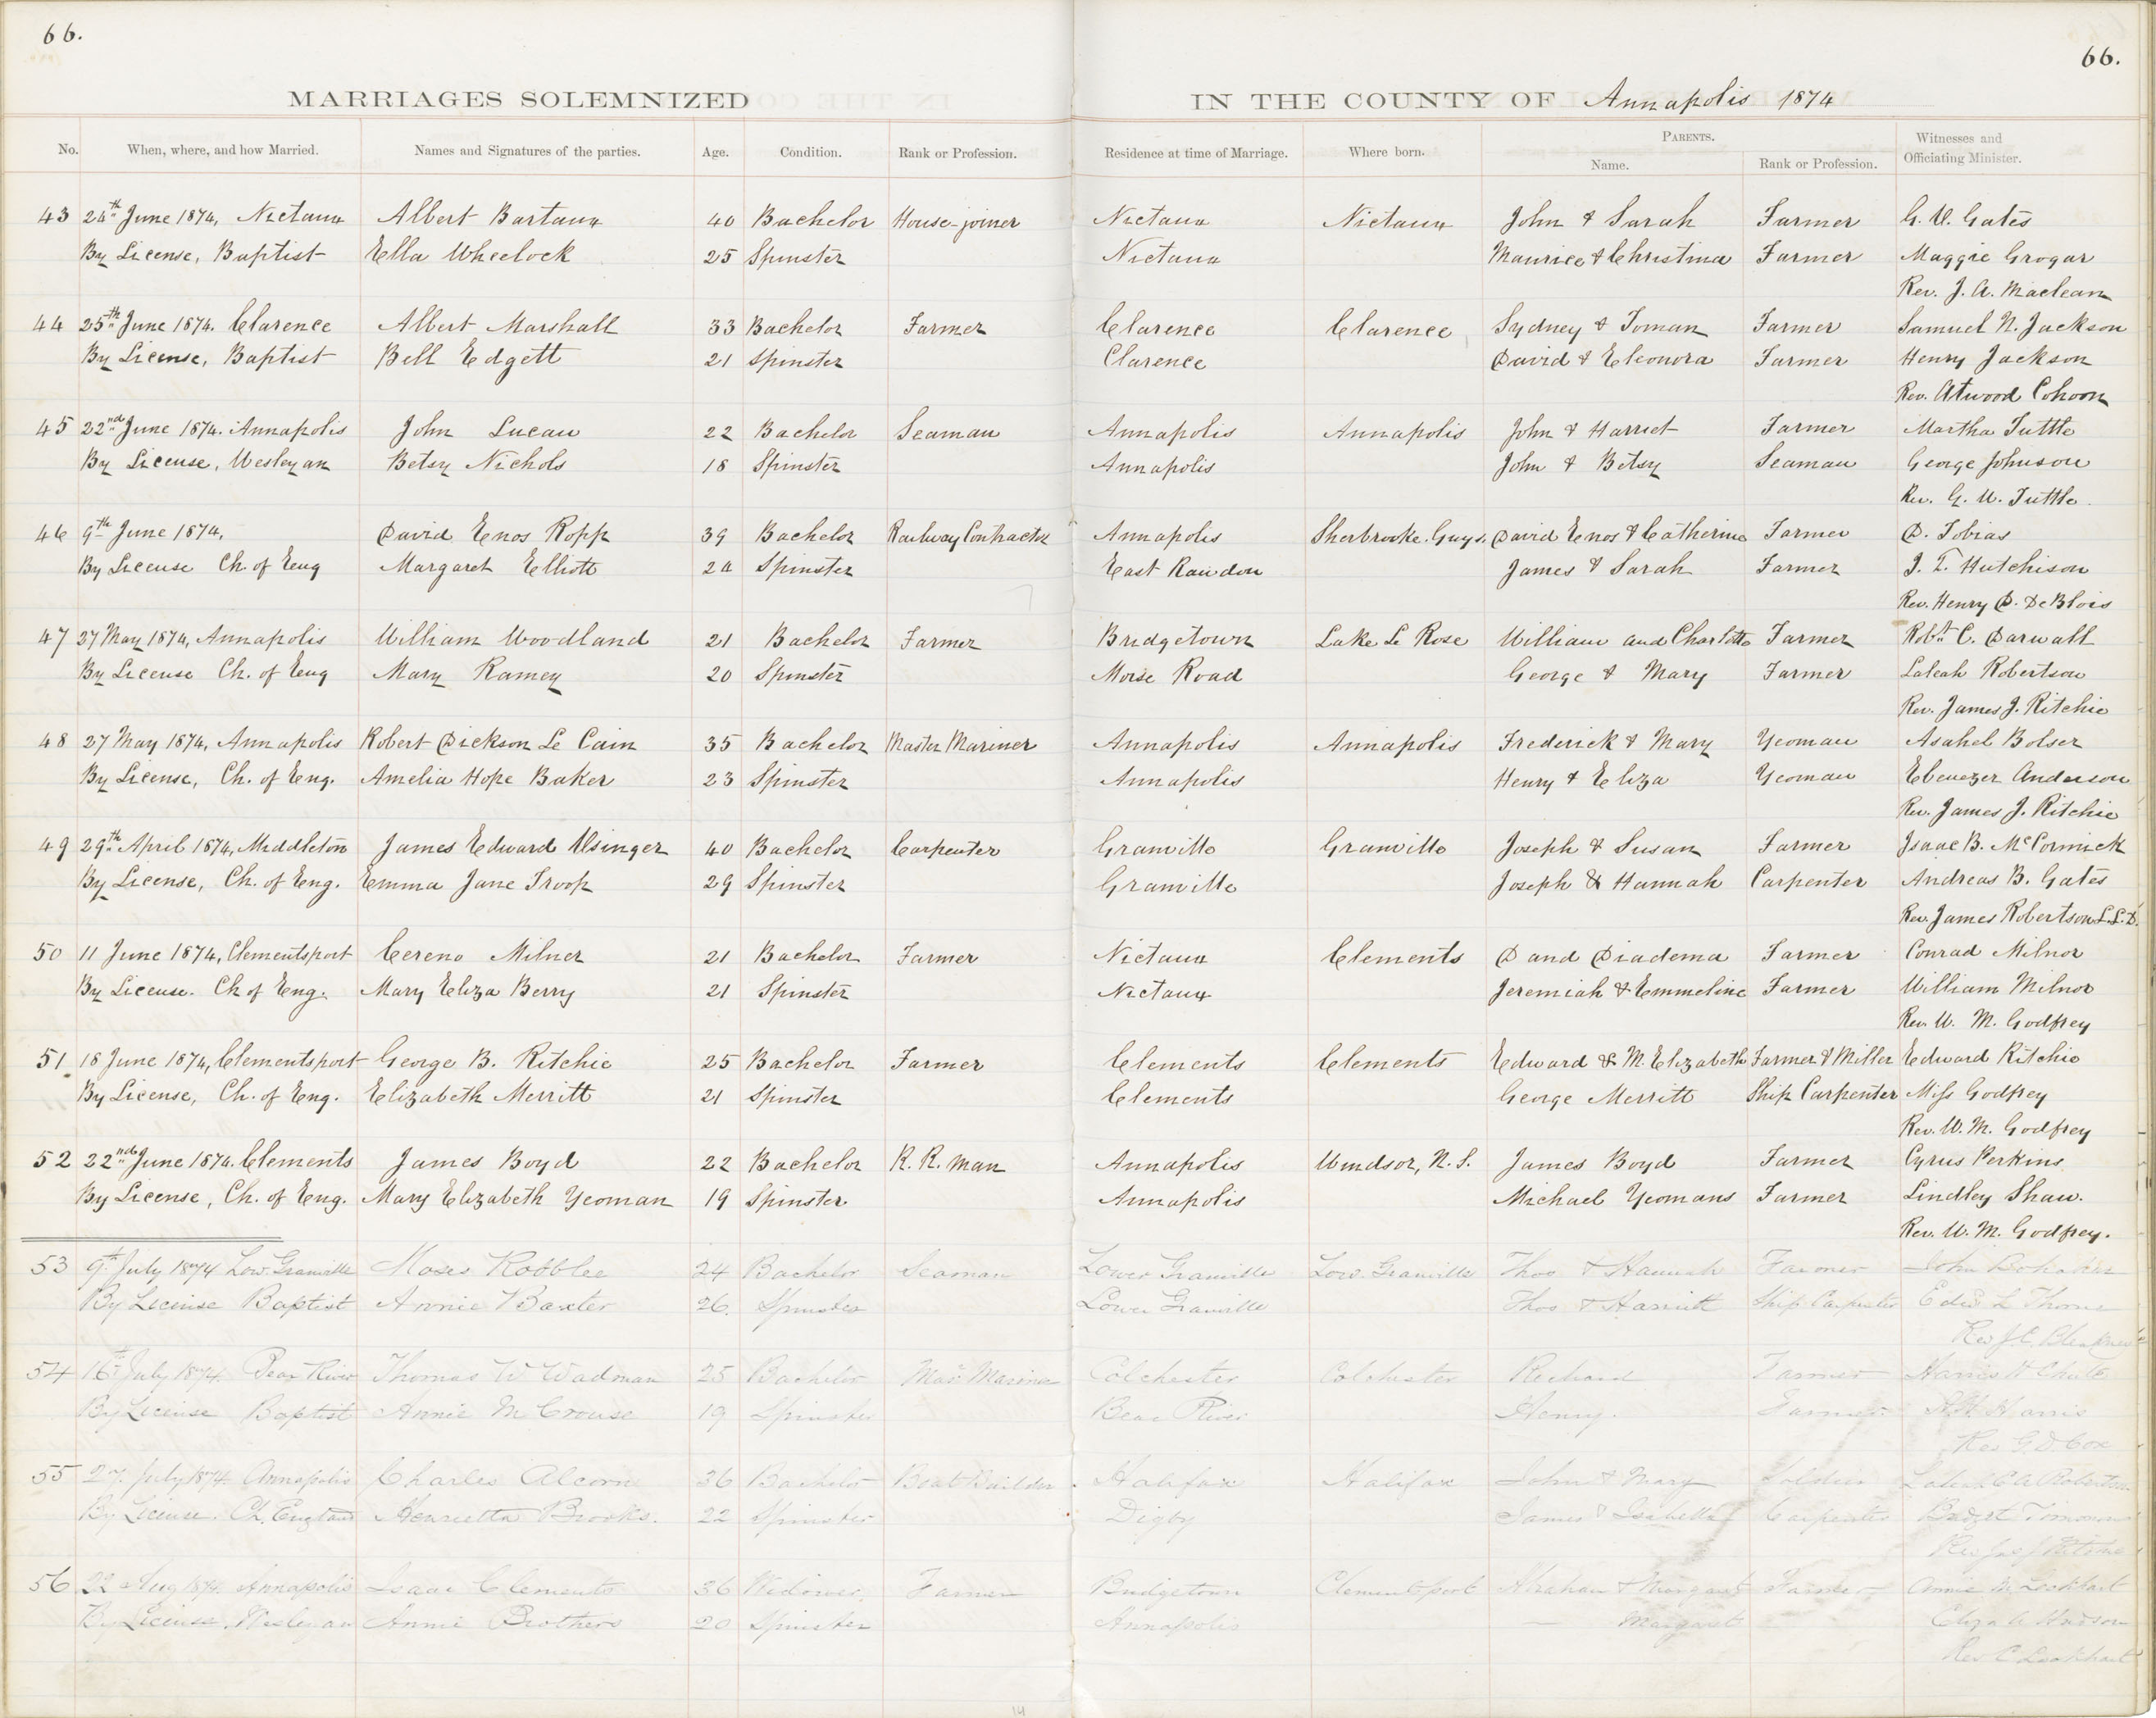 66.
66.
MARRIAGES SOLEMNIZED IN THE COUNTY OF Annapolis 1874
No. When, where, and how Married. Names and Signatures of the parties. Age. Condition. Rank or Profession. Residence at time of Marriage. Where born. PARENTS. Name. Rank or Profession. Witnesses and Officiating Minister.
43 24th June 1874, Nictaux Albert Bartaux 40 Bachelor House-joiner Nictaux Nictaux John & Sarah Farmer G. W. Gates
By License, Baptist Ella Wheelock 25 Spinster Nictaux Maurice & Christina Farmer Maggie Grogar
Rev. J. A. Maclean
44 25th June 1874. Clarence Albert Marshall 33 Bachelor Farmer Clarence Clarence Sydney & Toman Farmer Samuel N. Jackson
By License, Baptist Bell Edgett 21 Spinster Clarence David & Eleonora Farmer Henry Jackson
Rev. Atwood Cohoon
45 22nd June 1874. Annapolis John Lucau 22 Bachelor Seaman Annapolis Annapolis John & Harriet Farmer Martha Tuttle
By License, Wesleyan Betsy Nichols 18 Spinster Annapolis John & Betsy Seaman George Johnson
Rev. G. W. Tuttle
46 9th June 1874, David Enos Ropp 39 Bachelor Railway Contractor Annapolis Sherbrooke. Guys. David Enos & Catherine Farmer D. Tobias
By License Ch. of Eng Margaret Elliott 24 Spinster East Rawdon James & Sarah Farmer J. T. Hutchison
Rev. Henry D. DeBlois
47 27 May 1874, Annapolis William Woodland 21 Bachelor Farmer Bridgetown Lake Le Rose William and Charlotte Farmer Robt. C. Darwall
By License Ch. of Eng Mary Ramey 20 Spinster Morse Road George & Mary Farmer Laleah Robertson
Rev. James J. Ritchie
48 27 May 1874, Annapolis Robert Dickson Le Cain 35 Bachelor Master Mariner Annapolis Annapolis Frederick & Mary Yeoman Asahel Bolser
By License, Ch. of Eng. Amelia Hope Baker 23 Spinster Annapolis Henry & Eliza Yeoman Ebenezer Anderson
Rev. James J. Ritchie
49 29th April 1874, Middleton James Edward Usinger 40 Bachelor Carpenter Granville Granville Joseph & Susan Farmer Isaac B. McCormick
By License, Ch. of Eng. Emma Jane Troop 29 Spinster Granville Joseph & Hannah Carpenter Andreas B. Gates
Rev. James Robertson L.L.D.
50 11 June 1874, Clementsport Cereno Milner 21 Bachelor Farmer Nictaux Clements D and Diadema Farmer Conrad Milnor
By License. Ch of Eng. Mary Eliza Berry 21 Spinster Nictaux Jeremiah & Emmeline Farmer William Milnor
Rev. W. M. Godfrey
51 18 June 1874, Clementsport George B. Ritchie 25 Bachelor Farmer Clements Clements Edward & M. Elizabeth Farmer & Miller Edward Ritchie
By License, Ch. of Eng. Elizabeth Merritt 21 Spinster Clements George Merritt Ship Carpenter Miss Godfrey
Rev. W. M. Godfrey
52 22nd June 1874. Clements James Boyd 22 Bachelor R. R. Man Annapolis Windsor, N. S. James Boyd Farmer Cyrus Perkins
By License, Ch. of Eng. Mary Elizabeth Yeoman 19 Spinster Annapolis Michael Yeomans Farmer Lindley Shaw.
Rev. W. M. Godfrey.
53 9th July 1874 Low. Granville Moses Robblee 24 Bachelor Seaman Lower Granville Low. Granville Thos & Hannah Farmer John
By License Baptist Annie Baxter 26. Spinster Lower Granville Thos & Harriett Ship Carpenter Edw L Thorne
Rev J. C.
54 16th July 1874 Bear River Thomas W Wadman 25 Bachelor Mas. Mariner Colchester Colchester Richard Farmer Harris H Chute
By License Baptist Annie M Crouse 19 Spinster Bear River Henry. Farmer Harris
Rev G D Cox
55 27. July 1874 Annapolis Charles Alcorn 36 Bachelor Boat Builder Halifax Halifax John & Mary Soldier Laleah C A Robertson
By License. Ch. England Henrietta Brooks. 22 Spinster Digby James & Isabella Carpenter
Rev Jas J Ritchie
56 22 Aug 1874 Annapolis Isaac Clements 36 Widower Farmer Bridgetown Clementsport Abraham & Margaret Farmer Annie M Lockhart
By License. Wesleyan Annie Brothers 20 Spinster Annapolis — Margaret Eliza A Hudson
Rev C Lockhart
14